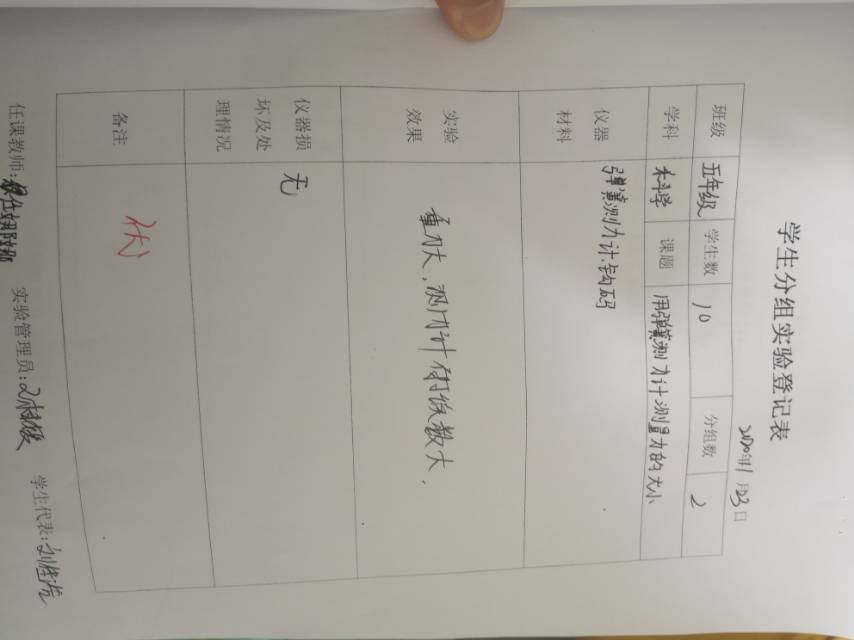 学生分组实验登记表
2020年11月23日
班级 五年级 学生数 10 分组数 2
学科 科学 课题 用弹簧测力计测量力的大小
仪器材料 弹簧测力计.钩码
实验效果 重力大,测力计 数大.
仪器损坏及处理情况 无
备注 优
任课教师: 实验管理员: 学生代表:刘佳